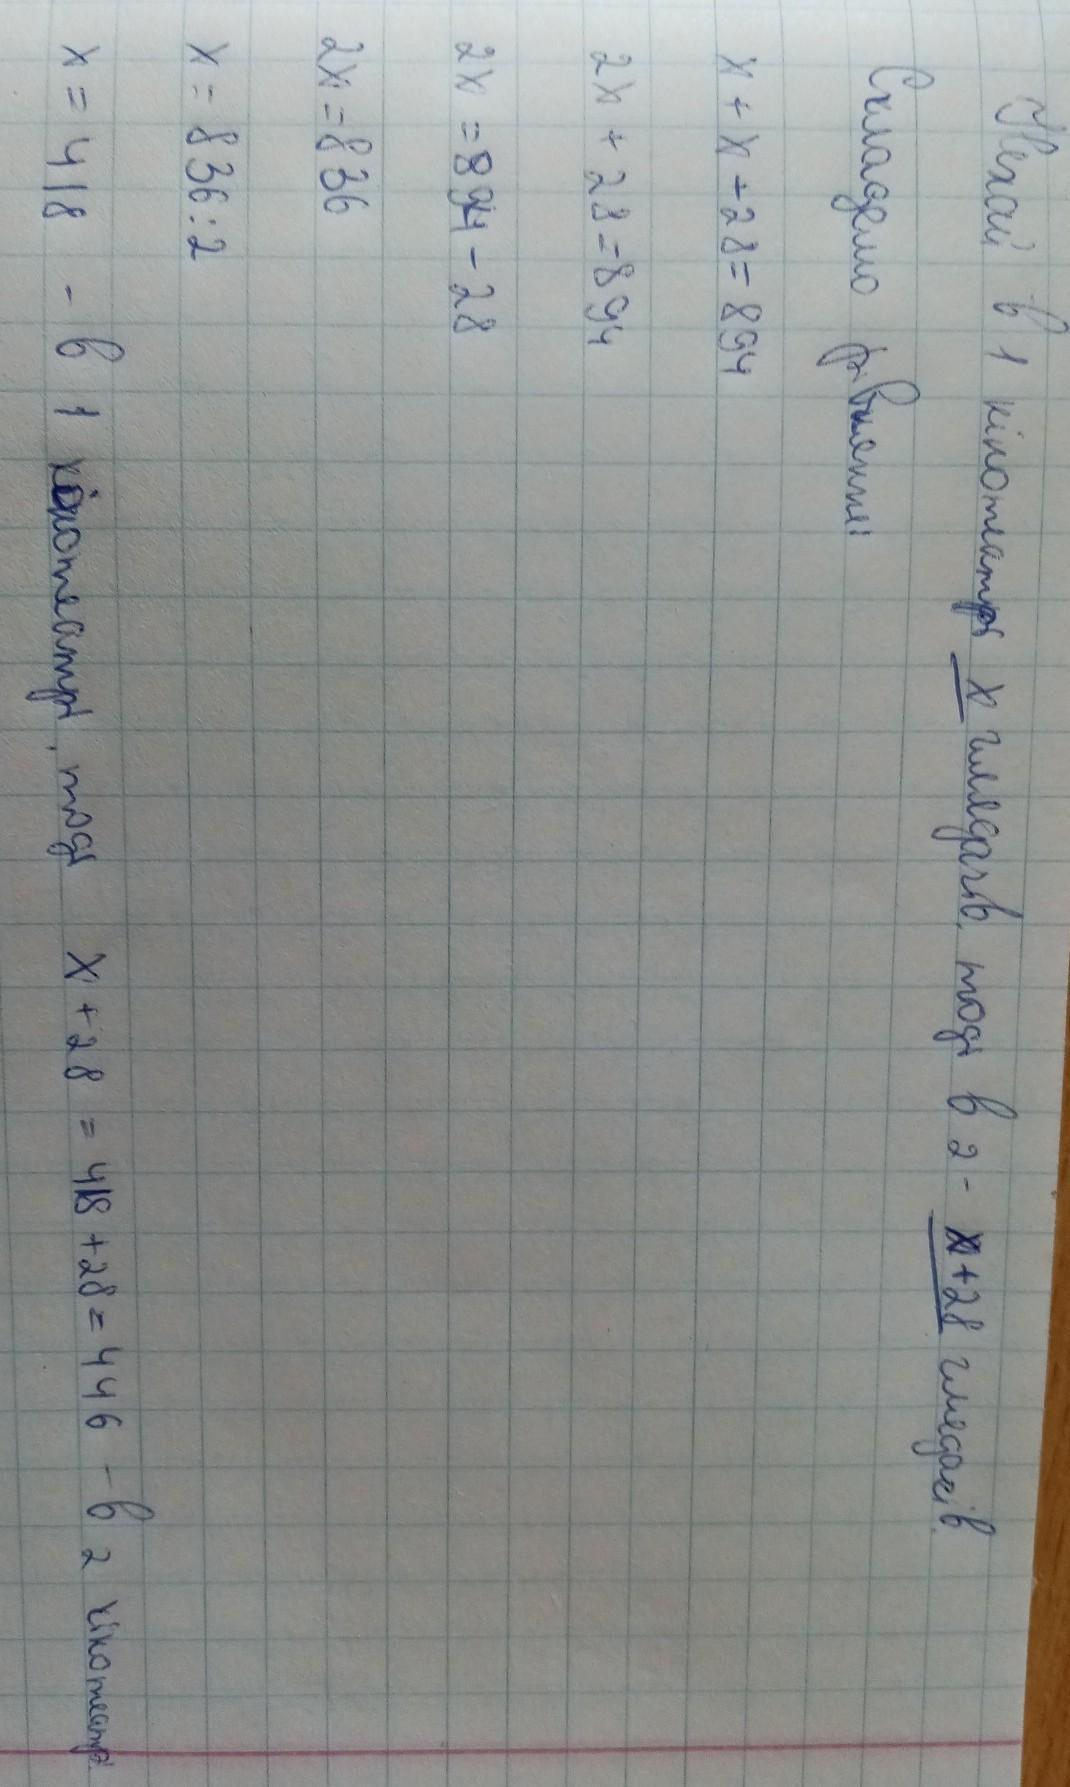 Нехай в 1 кінотеатрі х глядачів, тоді в 2 - х+28 глядачів.
Складемо рівняння:
х + х + 28 = 894
2х + 28 = 894
2х = 894 - 28
2х = 836
х = 836 : 2
х = 418 - в 1 кінотеатрі, тоді х + 28 = 418 + 28 = 446 - в 2 кінотеатрі